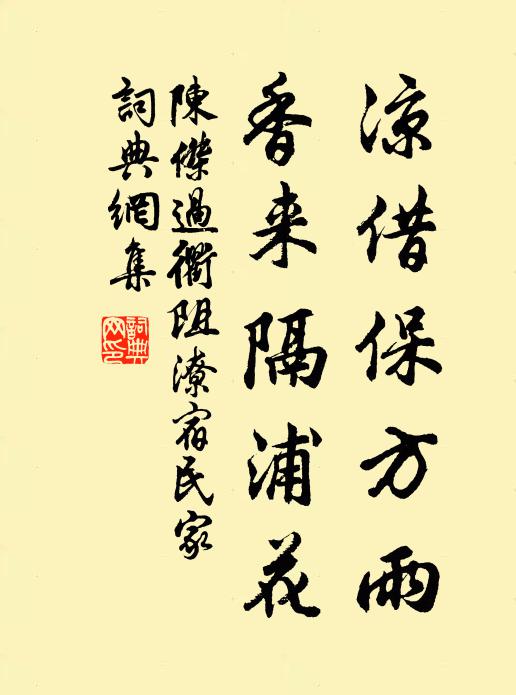 凉借保方雨
香来隔浦花
陳傑過衢阻潦宿民家
詞典網集
詞典網印